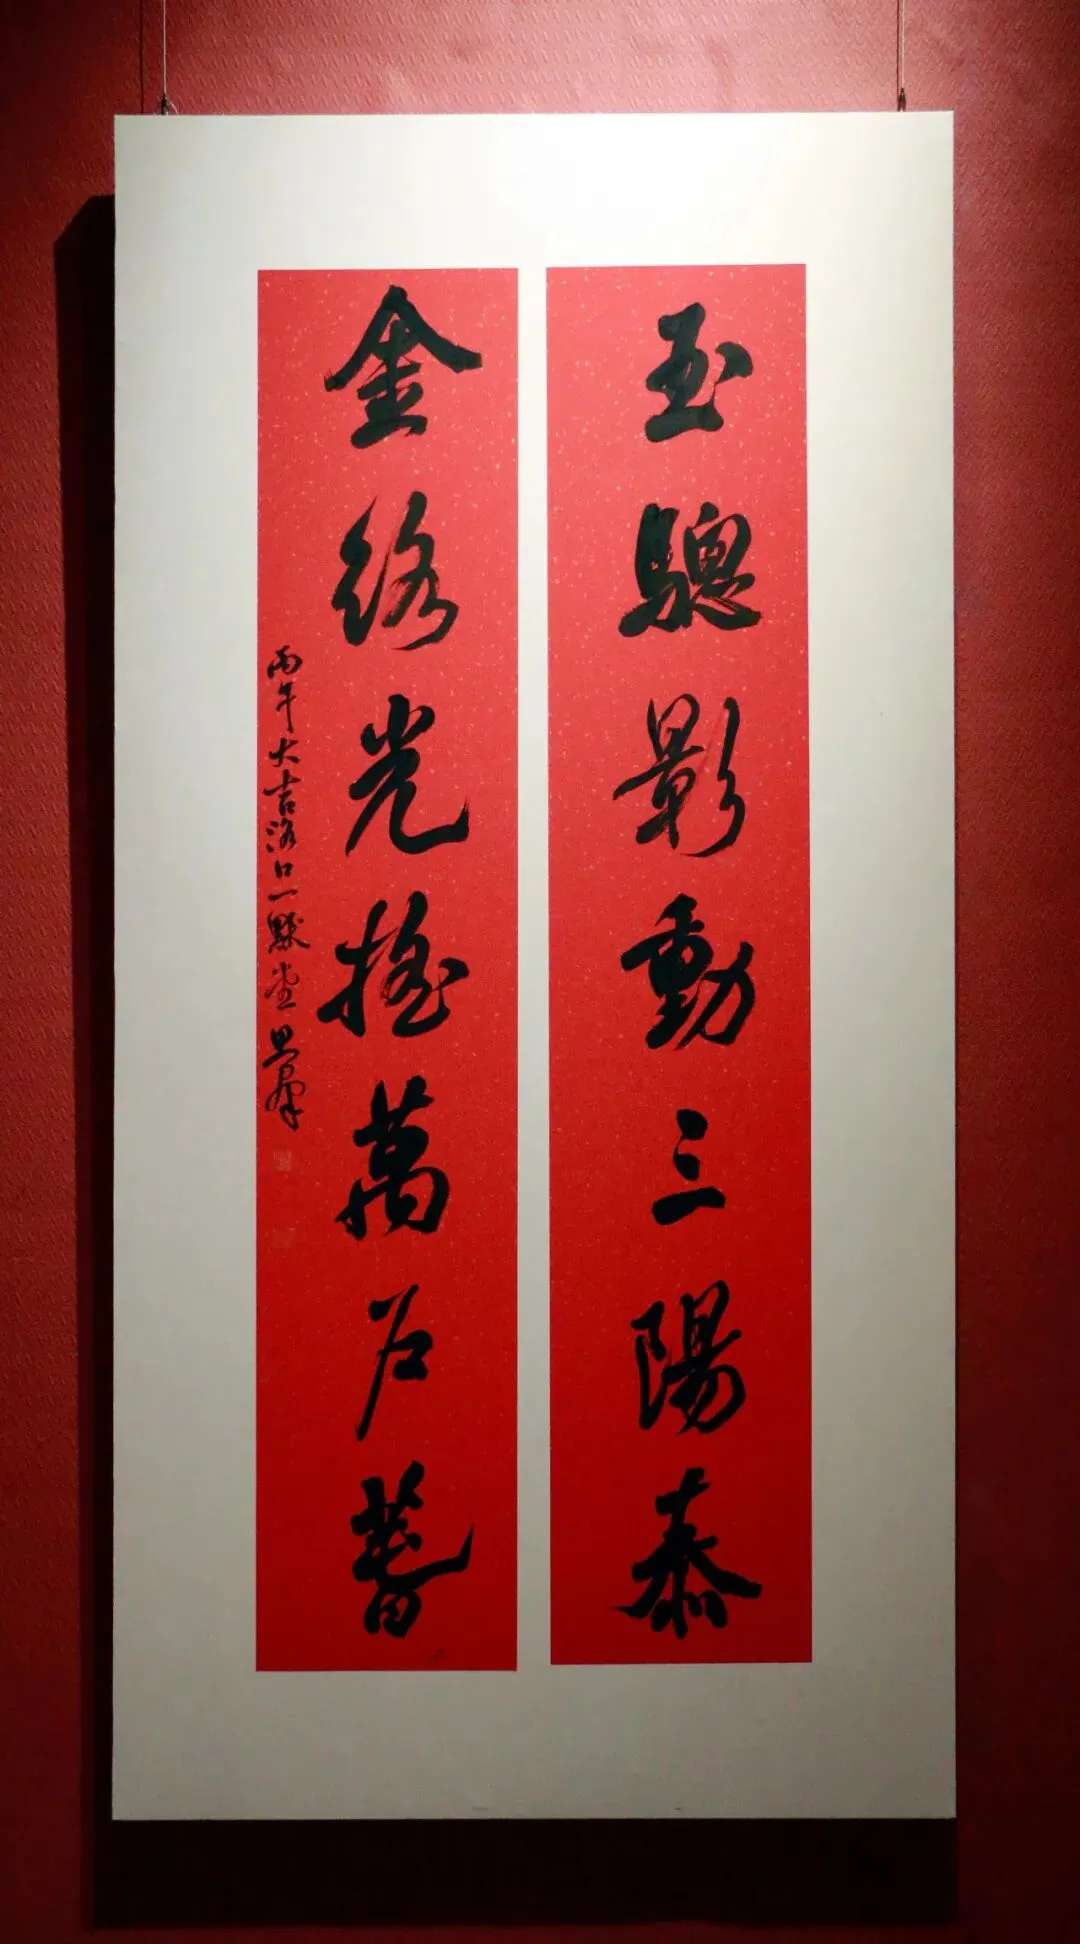 玉驄影動三陽泰
金絡光搖萬戶春
丙午大吉洛口一默堂